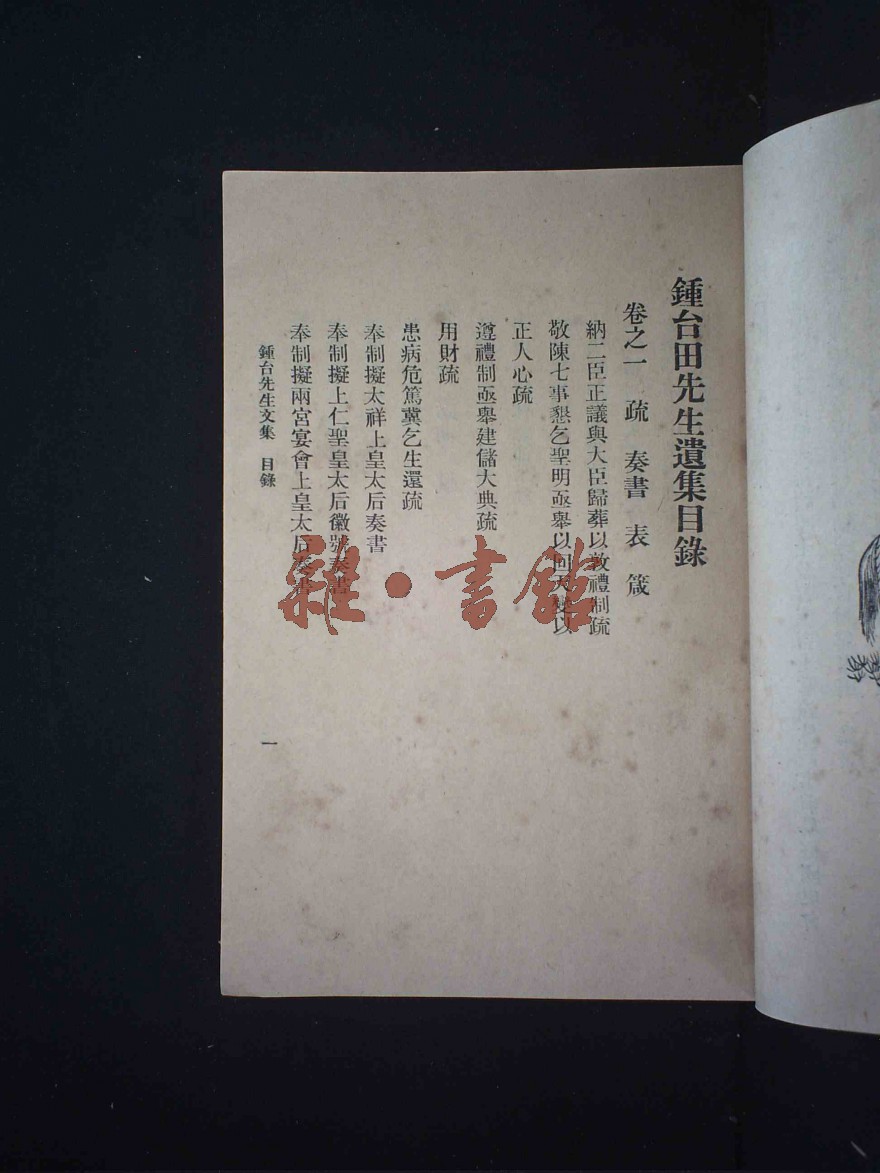 鍾台田先生遺集目錄
卷之一 疏 奏書 表 箴
納二臣正議與大臣歸葬以敦禮制疏
敬陳七事懇乞聖明亟舉以回天變以
正人心疏
遵禮制亟舉建儲大典疏
用財疏
患病危篤冀乞生還疏
奉制擬太祥上皇太后奏書
奉制擬上仁聖皇太后徽號奏書
奉制擬兩宮宴會上皇太后奏書
鍾台先生文集 目錄
一
雜·書館